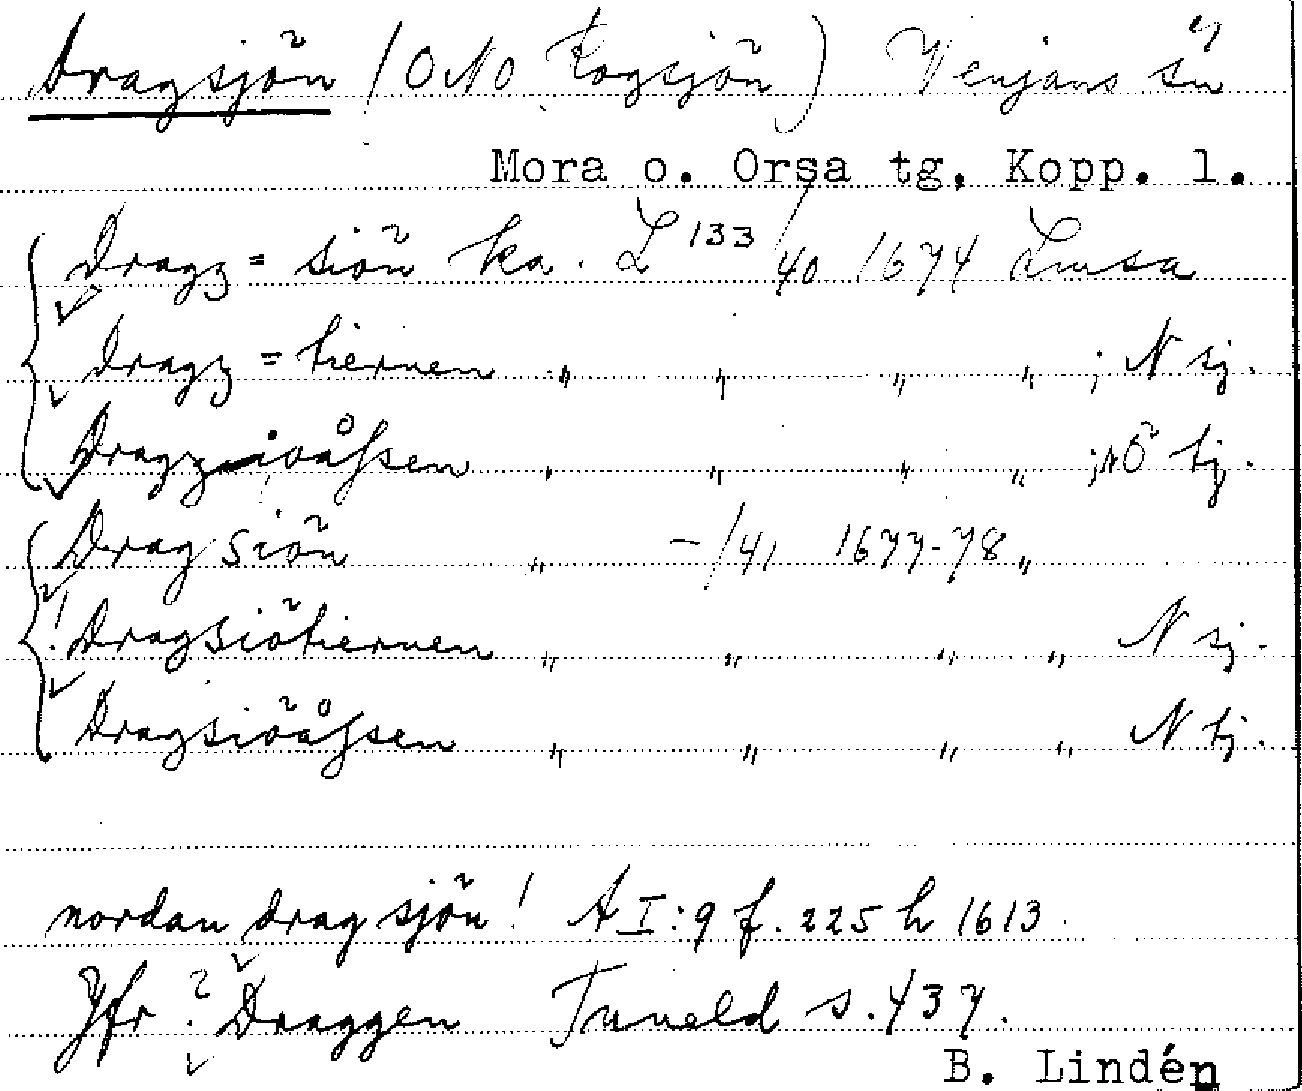 Dragsjön (ONO Kogsjön) Venjans sn
Mora o. Orsa tg. Kopp. l.
Dragz=siön ka. L 133/40 1674 Limsa
Dragz=tiernen " " " " ; N sj.
Dragzsioåssen " " " " ; NÖ bj.
Drag siön " -/41 1677-78 "
! Dragsiötiernen " " " " N sj.
Dragsiöåssen " " " " N bj.
nordan drag sjön! A I:9 f. 225 h 1613.
Jfr ? Draggen Tuneld s. 437.
B. Lindén